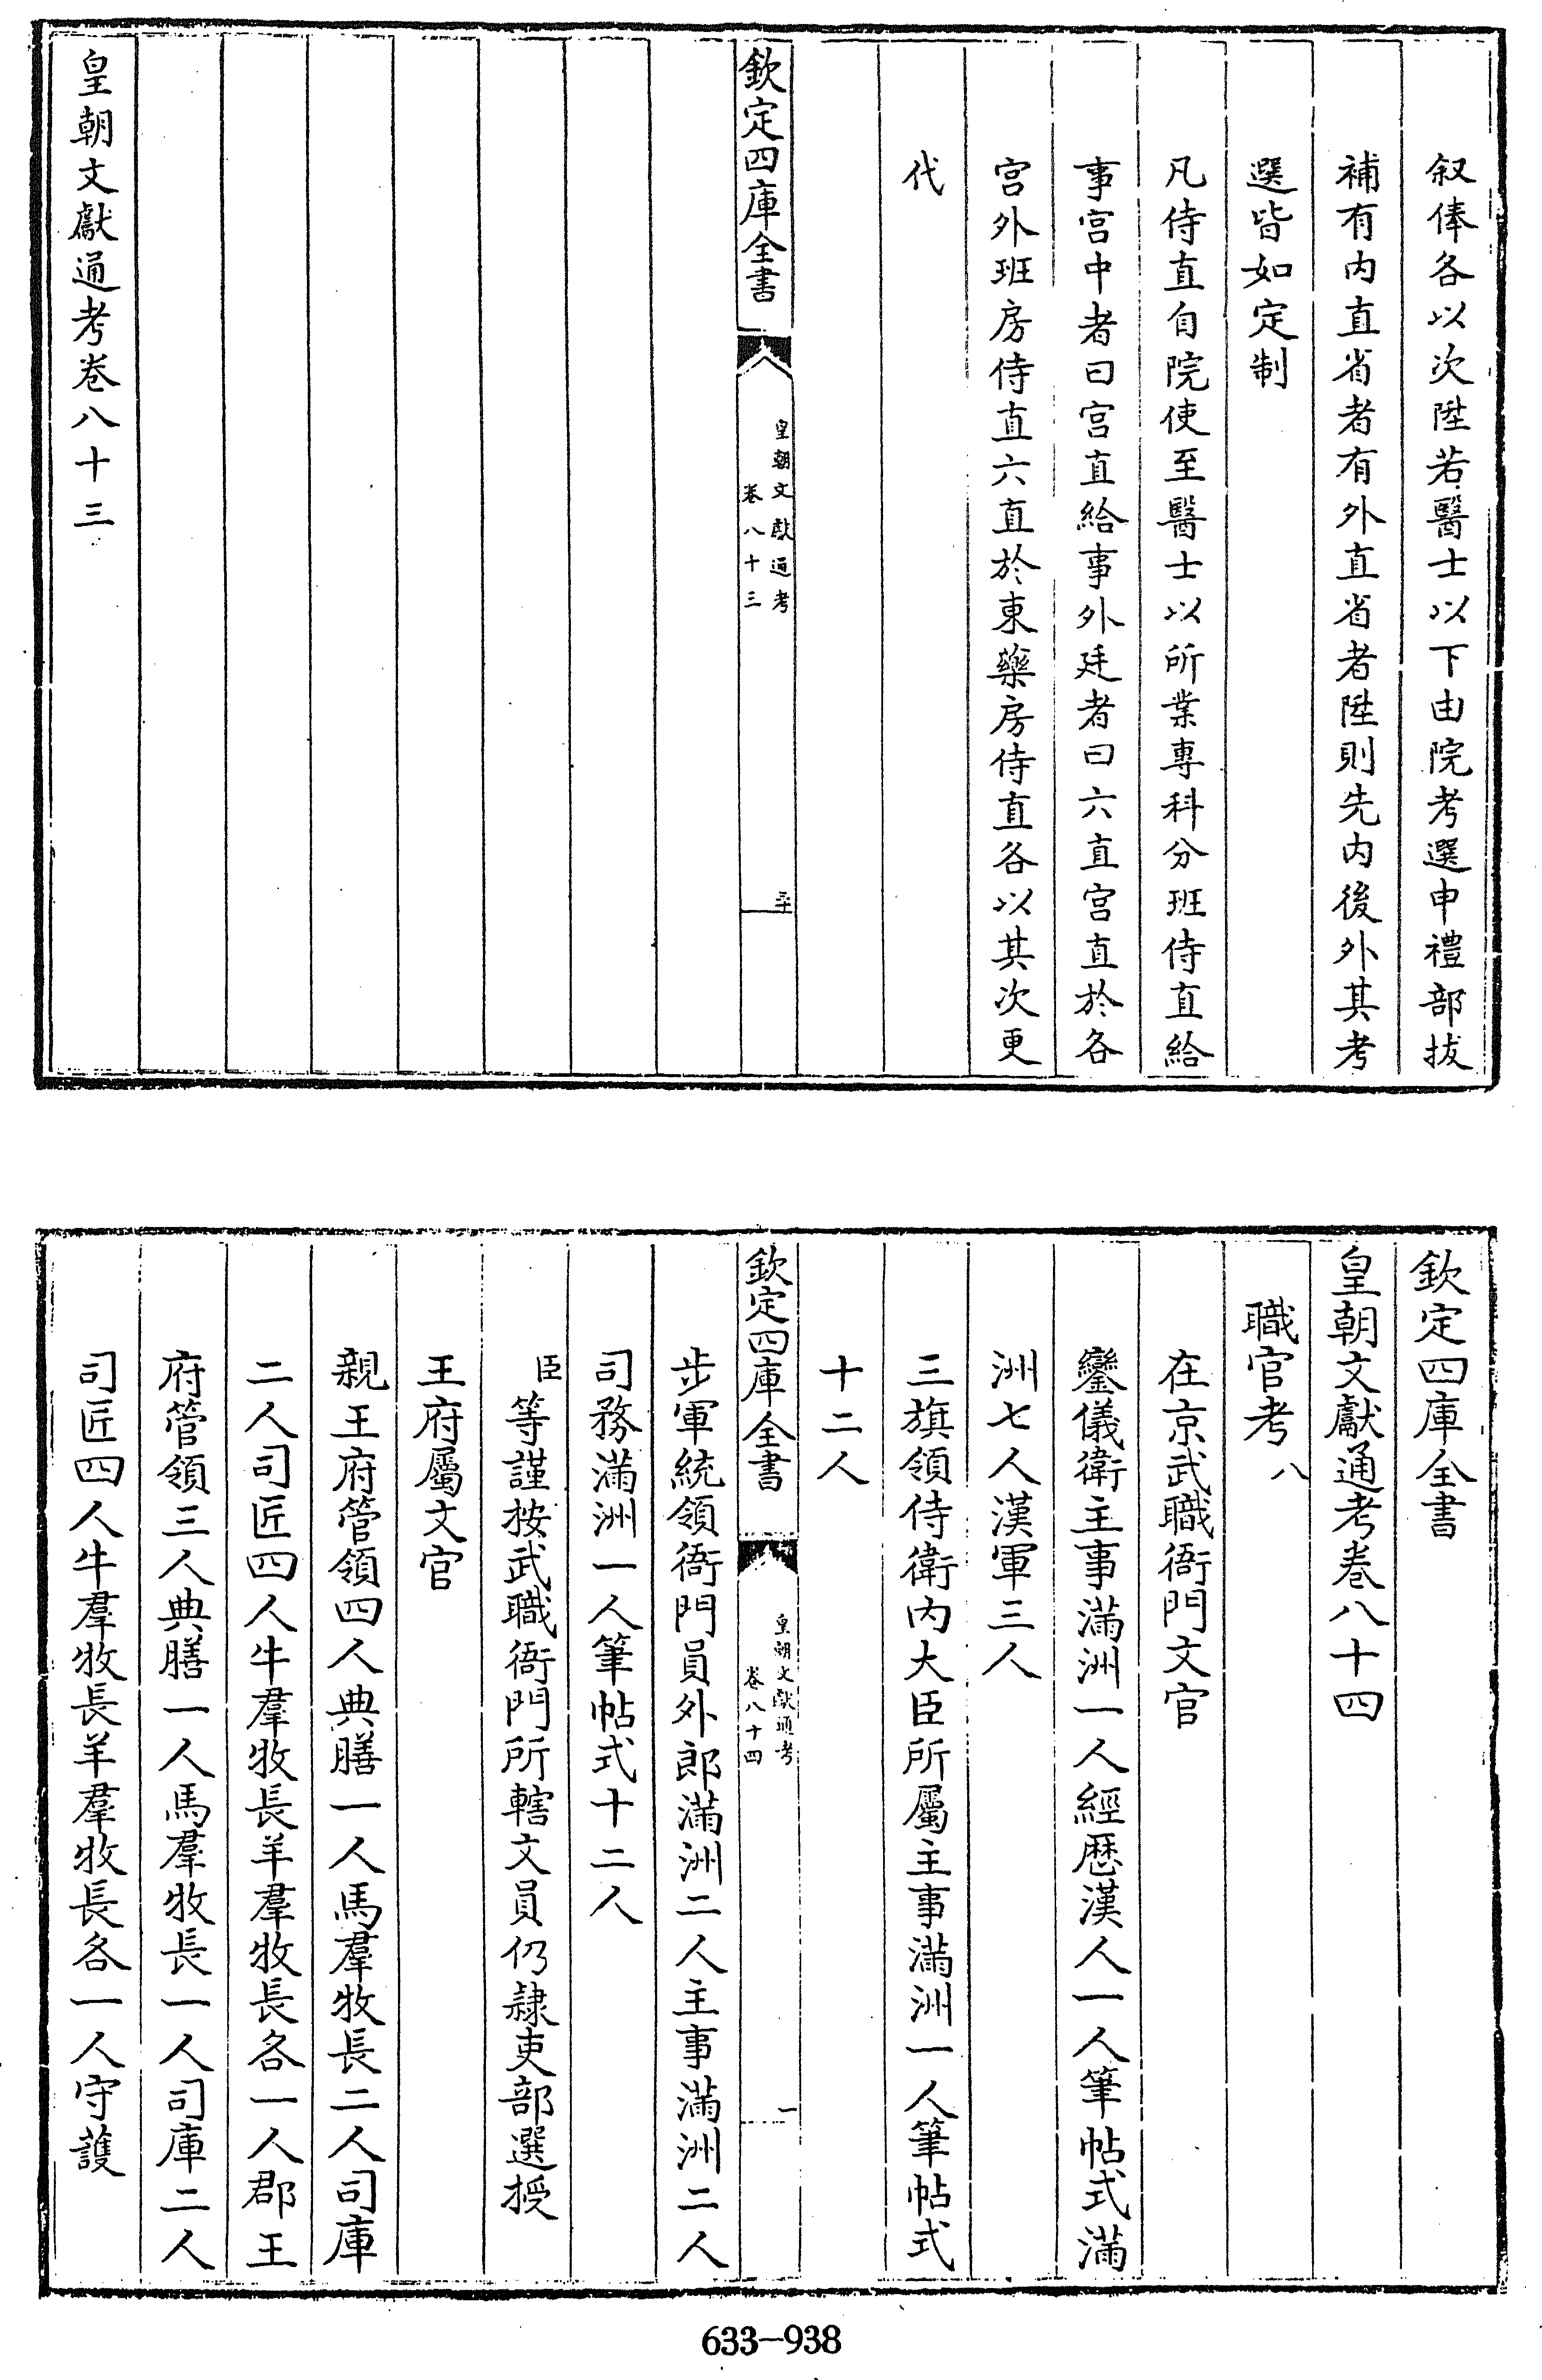 叙俸各以次陞若醫士以下由院考選申禮部拔
補有内直省者有外直省者陞則先内後外其考
選皆如定制
凡侍直自院使至醫士以所業專科分班侍直給
事宫中者曰宫直給事外廷者曰六直宫直於各
宫外班房侍直六直於東藥房侍直各以其次更
代
欽定四庫全書
皇朝文獻通考
卷八十三
三十
皇朝文獻通考卷八十三
欽定四庫全書
皇朝文獻通考卷八十四
職官考八
在京武職衙門文官
鑾儀衛主事滿洲一人經歷漢人一人筆帖式滿
洲七人漢軍三人
三旗領侍衛内大臣所屬主事滿洲一人筆帖式
十二人
欽定四庫全書
皇朝文獻通考
卷八十四
一
步軍統領衙門員外郎滿洲二人主事滿洲二人
司務滿洲一人筆帖式十二人
臣等謹按武職衙門所轄文員仍隸吏部選授
王府屬文官
親王府管領四人典膳一人馬羣牧長二人司庫
二人司匠四人牛羣牧長羊羣牧長各一人郡王
府管領三人典膳一人馬羣牧長一人司庫二人
司匠四人牛羣牧長羊羣牧長各一人守護
633-938